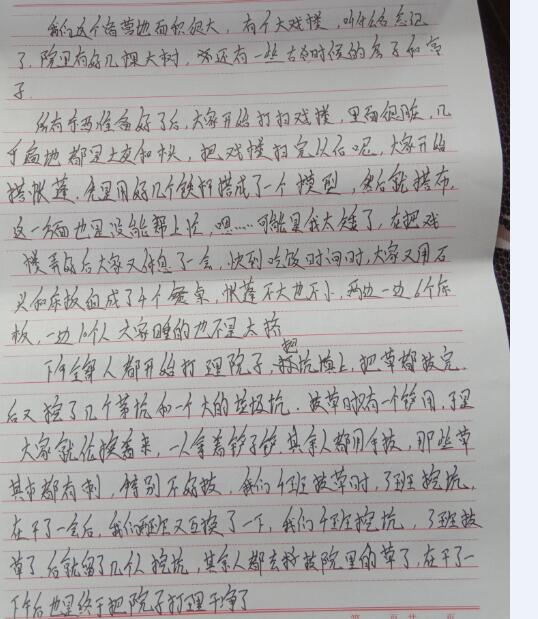 我们这个宿营地面积很大，有个大戏楼，叫什么名忘记
了，院里有好几棵大树，还有一些古时候的房子和亭
子
所有东西准备好了后，大家开始打扫戏楼，里面很脏，几
乎遍地都是土皮和 把戏楼扫完以后呢，大家开始
搭帐蓬，先是用好几个铁杆搭成了一个模型，然后就搭布，
这一方面也是没能帮上忙，嗯……可能是我太矮了，在把戏
楼弄好后大家又休息了一会，快到吃饭时间时，大家又用石
头和床板组成了4个餐桌，帐蓬不大也不小，两边一边6个床
板，一边10个人大家睡的也不是太挤
下午全部人都开始打理院子，把坑填上，把草都拔完，
后又挖了几个茅坑和一个大的垃圾坑。拔草时只有一个铲用，于是
大家就轮换着来，一人拿着铲子铲，其余人都用手拔，那些草
其中都有刺，特别不好拔，我们1班拔草时，3班挖坑，
在干了一会后，我们两班又互换了一下，我们1班挖坑，3班拔
草了后就留了几个人挖坑，其余人都去拔院里的草了，在干了一
下午后也是终于把院子打理干净了